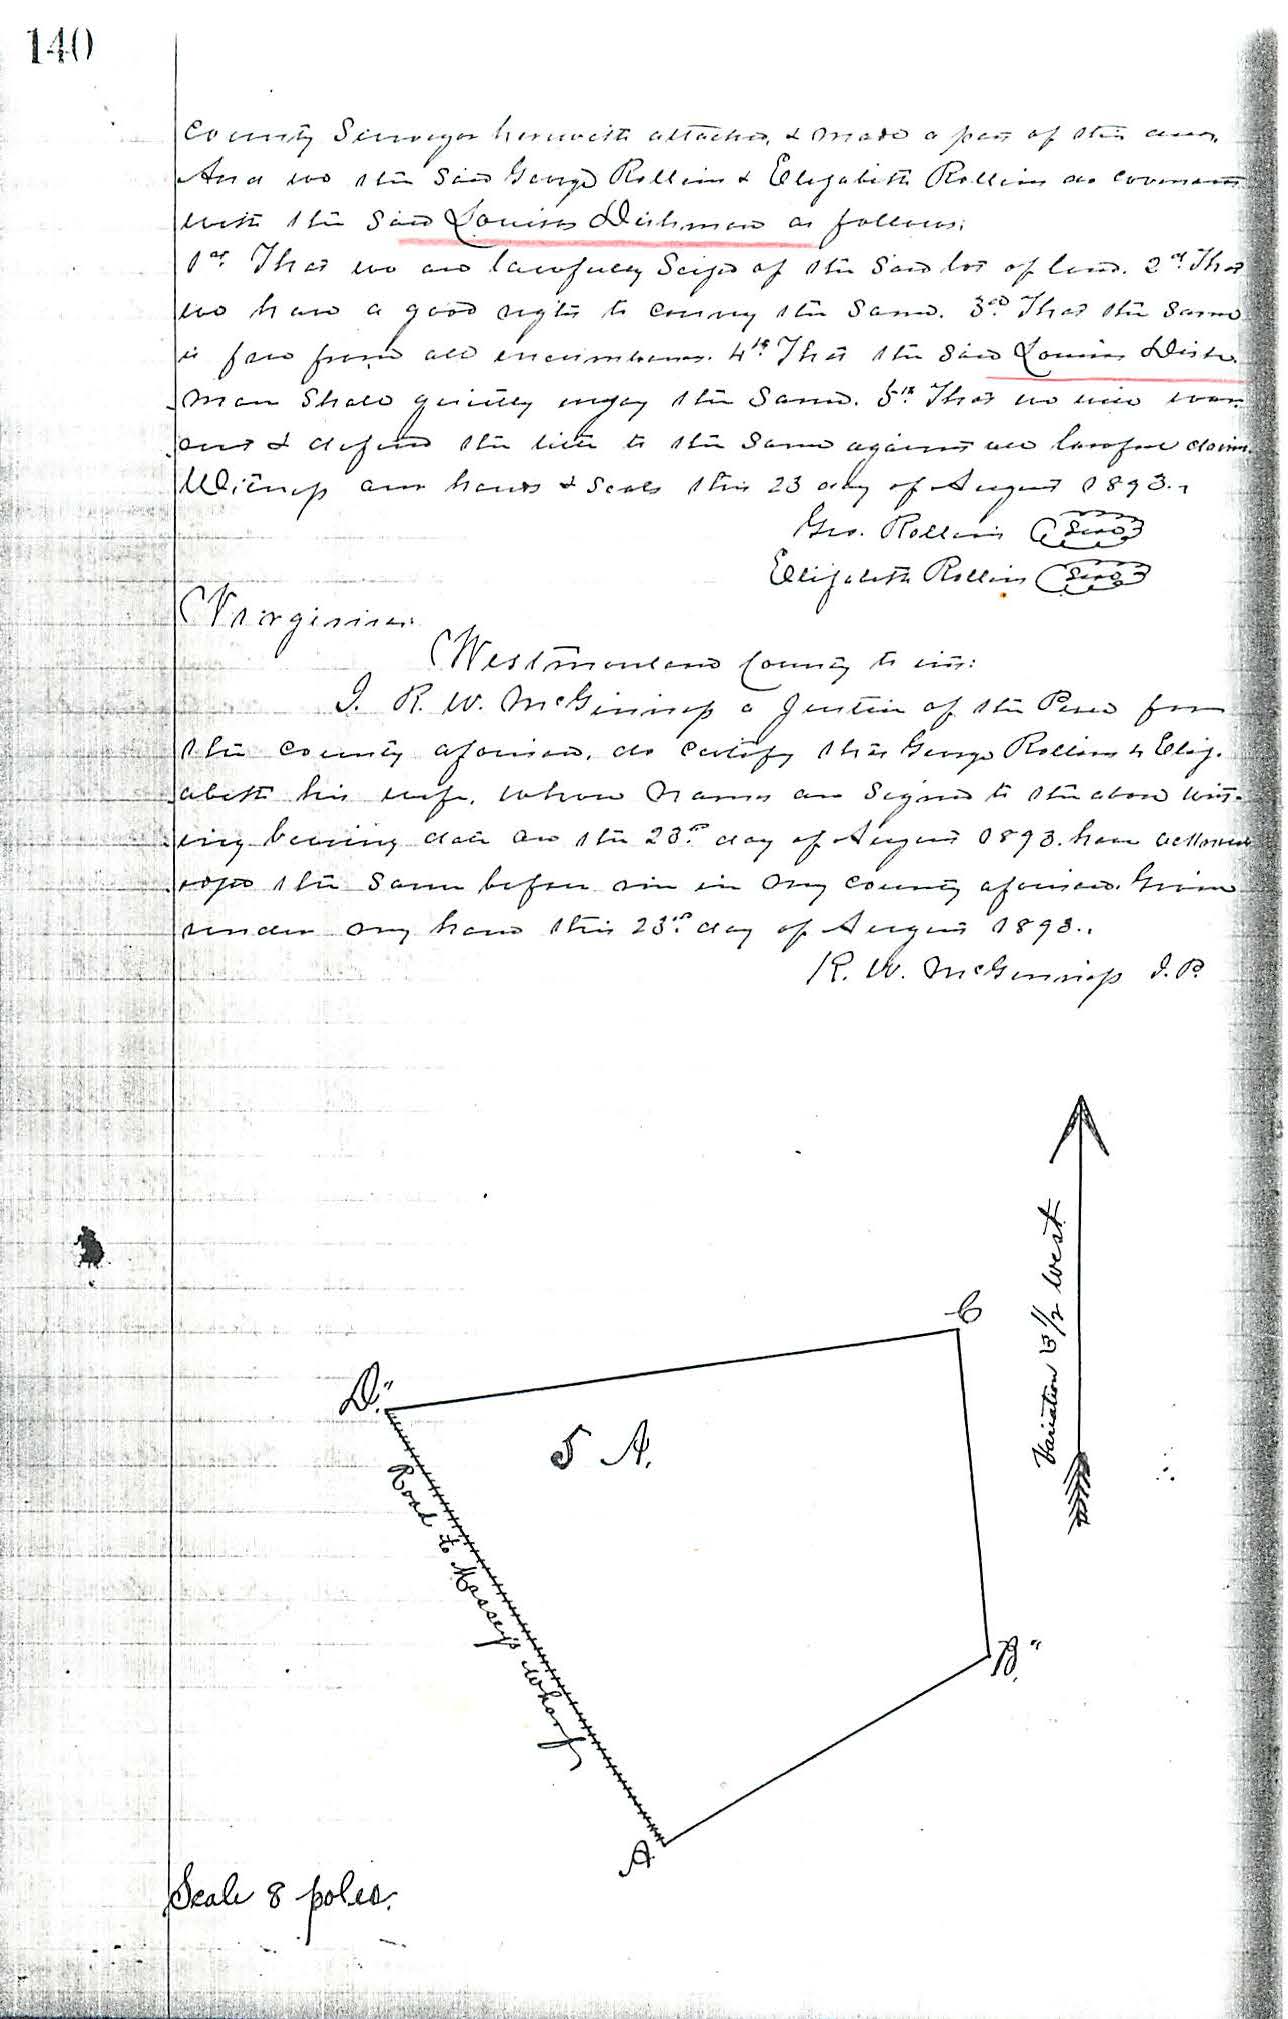 140
County Surveyor herewith attached, & made a part of this deed.
And we the Said George Rollins & Elizabeth Rollins do covenant
with the Said Louisa Dishman as follows:
1st That we are lawfully Seized of the Said lot of land. 2nd That
we have a good right to convey the Same. 3rd That the Same
is free from all encumbrances. 4th That the Said Louisa Dish-
man Shall quietly enjoy the Same. 5th That we will warr-
ant & defend the title to the Same against all lawful claims.
Witness our hands & Seals this 23 day of August 1893.
Geo. Rollins Seal
Elizabeth Rollins Seal
Virginia:
Westmoreland County to wit:
I. R. W. McGinniss a Justice of the Peace for
the County aforesaid, do certify that George Rollins & Eliz-
abeth his wife, whose names are Signed to the above writ-
ing bearing date on the 23rd day of August 1893. have acknowl-
edged the Same before me in my County aforesaid. Given
under my hand this 23rd day of August 1893.
R. W. McGinniss J. P.
Variation 3 1/2 West
C
D."
5 A.
Road to Massey's Wharf
B."
A
Scale 8 poles.